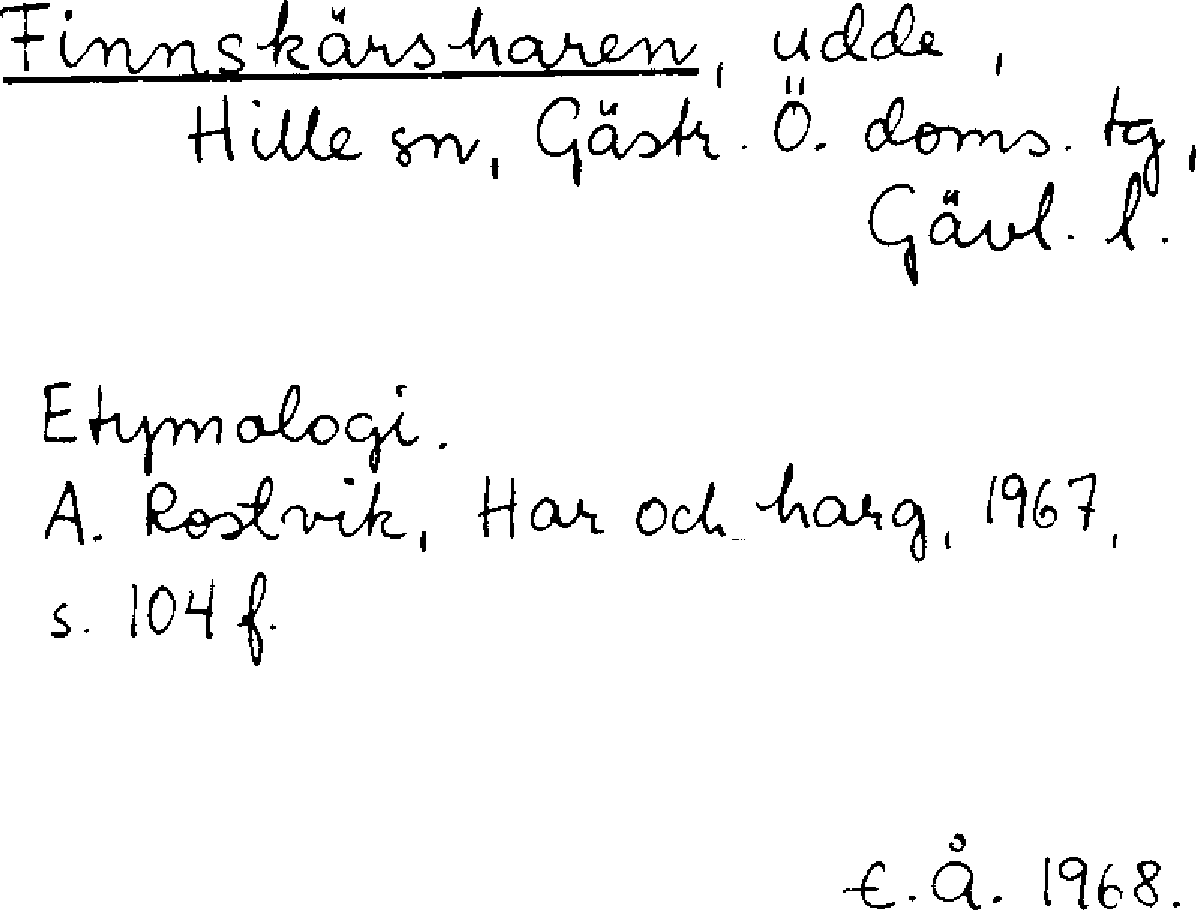 Finnskärsharen, udde,
Hille sn, Gästr. Ö. doms. tg,
Gävl. l.
Etymologi.
A. Rostvik, Har och harg, 1967,
s. 104 f.
E. Å. 1968.